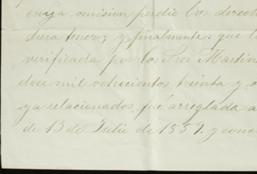 cuya omision perdio los derech
diera tener; y finalmente que l
verificada por los Sres Martin
dos mil ochocientos treinta y o
ya relacionados, fué arreglada a
de 13 de Julio de 1857. y conc